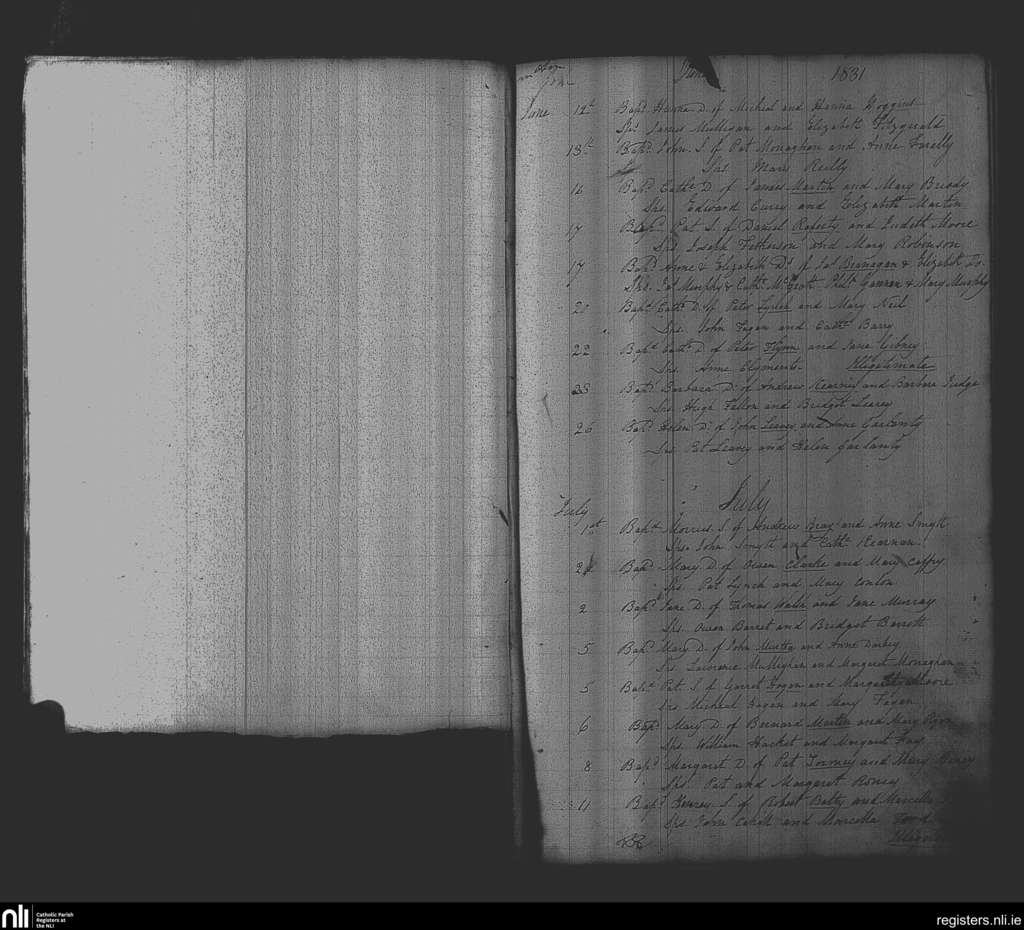 June 1831
June 12th Bapt. Hanna D. of Micheal and Hanna Hoggins
Sps. James Mulligan and Elizabeth Fitzgerald
13th Bapt. John S. of Pat Monaghan and Anne Farelly
Sps. Mary Reilly
16 Bapt. Cathe. D. of James Martin and Mary Briody
Sps. Edward Curry and Elizabeth Martin
17 Bapt. Pat S. of Daniel Raferty and Judith Moore
Sps. Joseph Fetherson and Mary Robinson
17 Bapt. Anne & Elizabeth Ds. of Pat Branagan & Elizabeth Do.
Sps. Pat Murphy & Cathe. Gannan & Mary Murphy
20 Bapt. Cathe. D. of Peter Lynch and Mary Neil
Sps. John Fagan and Cathe. Barry
22 Bapt. Cathe. D. of Peter Flynn and Jane Gibney
Sps. Anne Clyments. Illigetimate
23 Bapt. Barbara D. of Andrew Kearnes and Barbara Judge
Sps. Hugh Fallon and Bridget Leavey
26 Bapt. Helen D. of John Leavey and Anne Garlanty
Sps. Pat Leavey and Helen Garlanty
July
July 1st Bapt. Morris S. of Andrew Bray and Anne Smyth
Sps. John Smyth and Cathe. Kearnan
2 Bapt. Mary D. of Owen Clarke and Mary Caffry
Sps. Pat Lynch and Mary Conlon
2 Bapt. Jane D. of Thomas Walsh and Jane Murray
Sps. Owen Barret and Bridget Barrett
5 Bapt. Mary D. of John Murtha and Anne Darby
Sps. Lawrence Mullighan and Margaret Monaghan
5 Bapt. Pat S. of Garret Fagan and Margaret Moore
Sps. Micheal Fagan and Mary Fagan
6 Bapt. Mary D. of Bernard Martin and Mary
Sps. William Hacket and Margaret Fay
8 Bapt. Margaret D. of Pat Tormey and Mary
Sps. Pat and Margaret Roney
11 Bapt. Henry S. of Robert Batty and Marcella
Sps. Jane Cahill and Marcella Ford
nli
Catholic Parish
Registers at
the NLI
registers.nli.ie